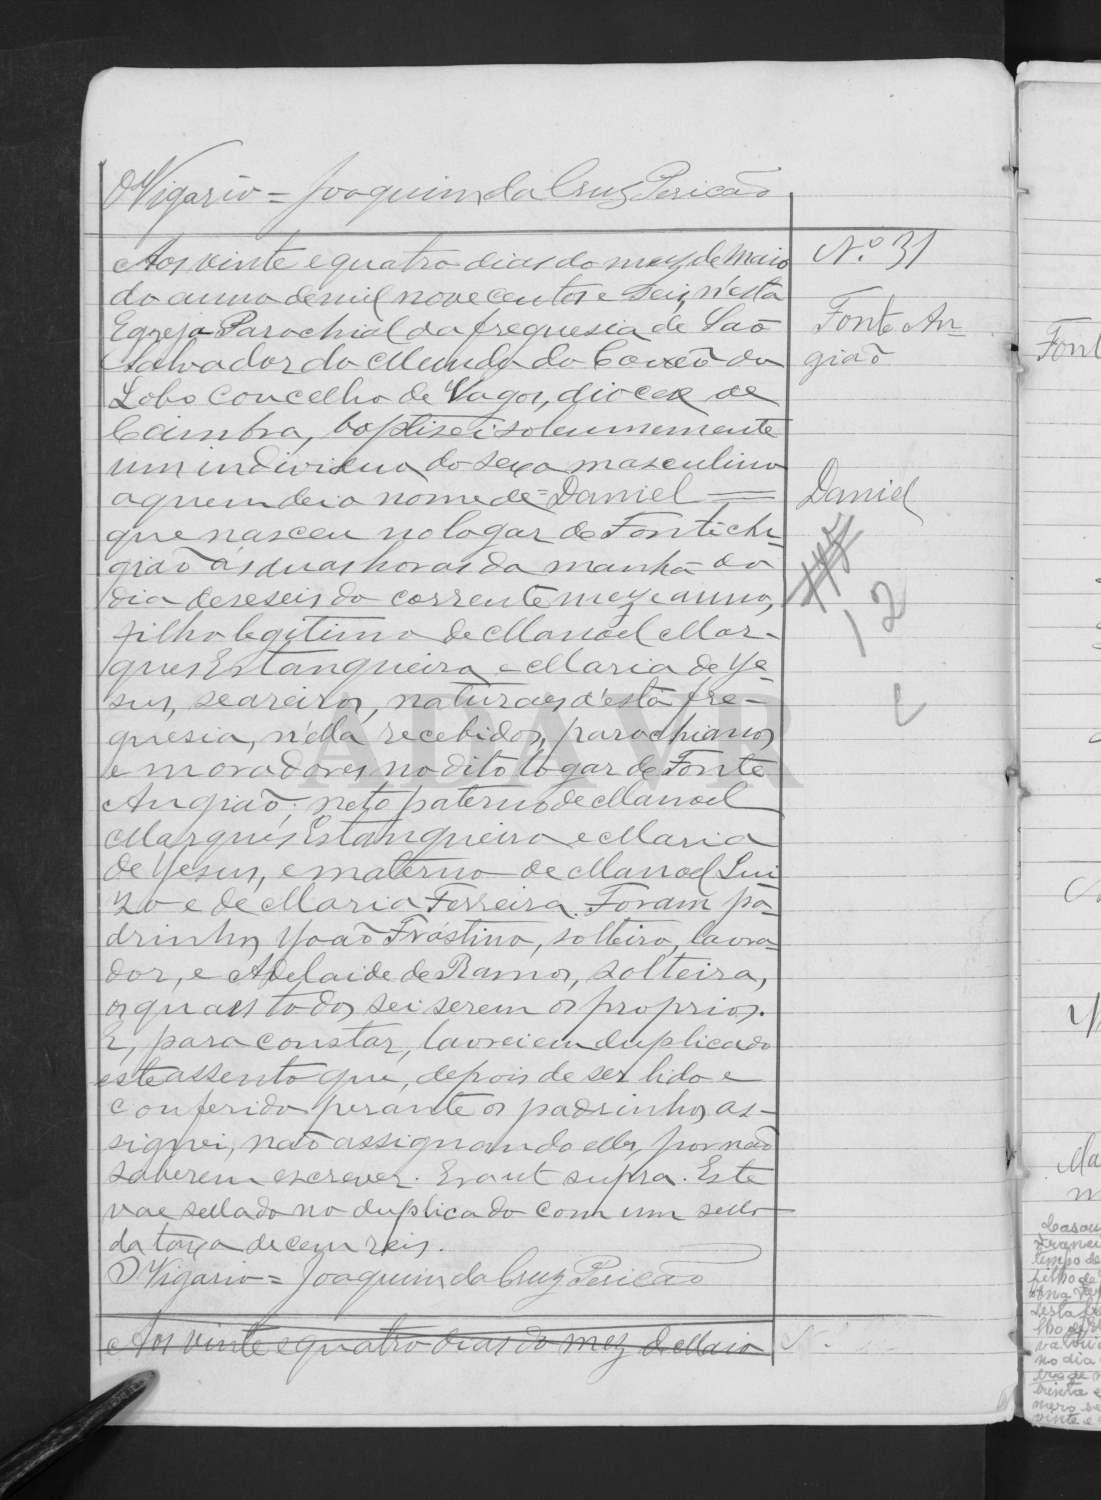 O Vigario = Joaquim da Cruz Pericão
Nº 31
Fonte An-
gião
Daniel
12
Aos vinte e quatro dias do mez de Maio
do anno de mil novecentos e seis, n'esta
Egreja Parochial da freguesia de São
Salvador do Mundo do Covão do
Lobo Concelho de Vagos, diocese de
Coimbra, baptisei solemnemente
um individuo do sexo masculino
a quem dei o nome de = Daniel =
que nasceu no logar de Fonte
gião ás duas horas da manhã do
dia deseseis do corrente mez e anno,
filho legitimo de Manoel Mar-
ques Estanqueiro e Maria de Ye-
sus, seareiros, naturaes d'esta fre-
guesia, n'ella recebidos, parochianos
e moradores no dito logar de Fonte
Angião; neto paterno de Manoel
Marques Estanqueiro e Maria
de Yesus, e materno de Manoel Lui
zo e de Maria Ferreira. Foram pa-
drinhos Yoão Frastino, solteiro, lavra-
dor, e Adelaide de Ramos, solteira,
os quaes todos sei serem os proprios.
E, para constar, lavrei em duplicado
este assento que, depois de ser lido e
conferido perante os padrinhos as-
signei, não assignando elles por não
saberem escrever. Era ut supra. Este
vae sellado no duplicado com um sello
da taxa de cem reis.
O Vigario = Joaquim da Cruz Pericão
Aos vinte e quatro dias do mez de Maio
ADAVR
Font